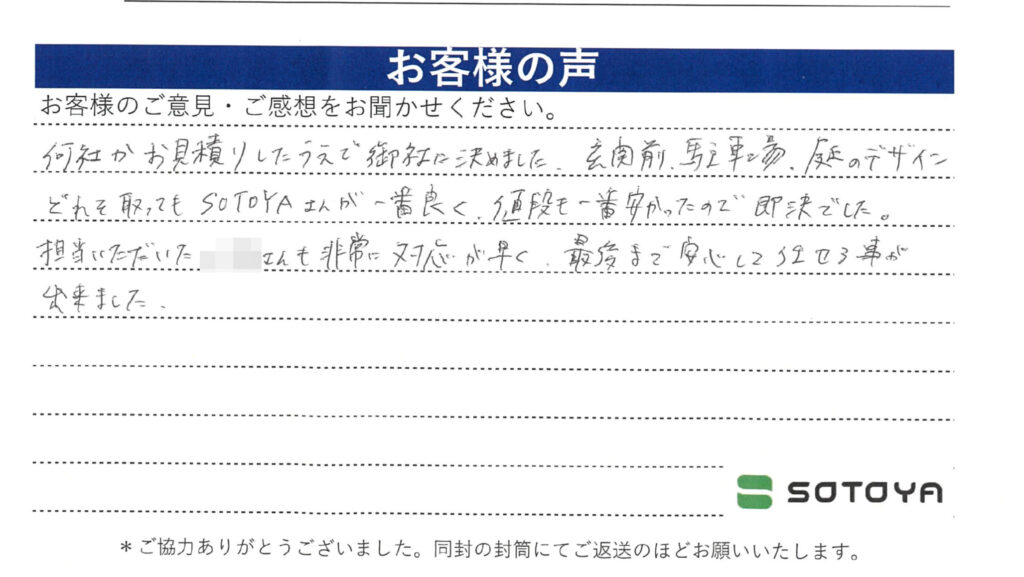 お客様の声
お客様のご意見・ご感想をお聞かせください。
何社かお見積りしたうえで御社に決めました。玄関前、駐車場、庭のデザイン
どれを取っても SOTOYAさんが一番良く、値段も一番安かったので即決でした。
担当いただいた さんも非常に対応が早く、最後まで安心して任せる事が
出来ました。
SOTOYA
＊ご協力ありがとうございました。同封の封筒にてご返送のほどお願いいたします。